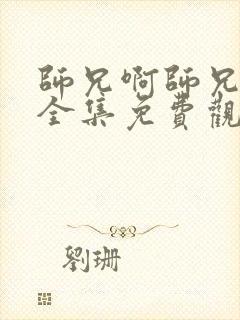 師兄啊師兄
全集免費觀
劉珊